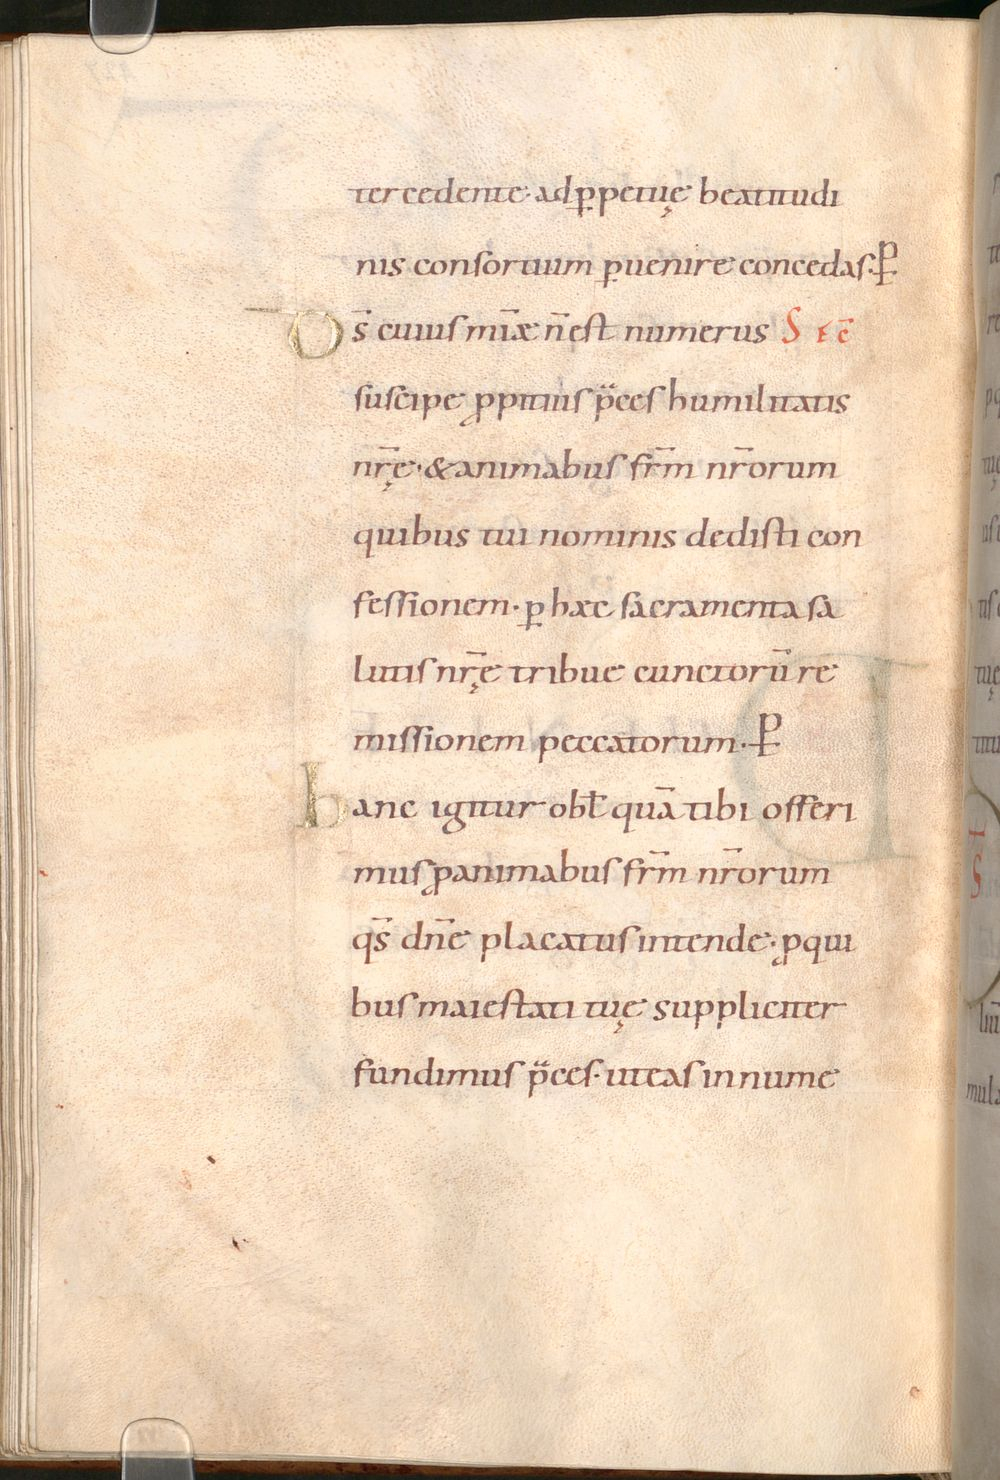 tercedente· ad ꝑpetuę beatitudi
nis consortium ꝑuenire concedas·ꝑ
Ds̄ cuius mīæ n̄ est numerus S E C̄
suscipe ꝓpitius p̈ces humilitatis
nr̄ę· & animabus fr̄m nr̄orum
quibus tui nominis dedisti con
fessionem· ꝑ hæc sacramenta sa
lutis nr̄ę tribue cunctorū re
missionem peccatorum·ꝑ
hanc igitur obł quā tibi offeri
mus ꝓ animabus fr̄m nr̄orum
qs̄ dn̄e placatus intende· ꝓ qui
bus maiestati tuę suppliciter
fundimus p̈ces· ut eas in nume